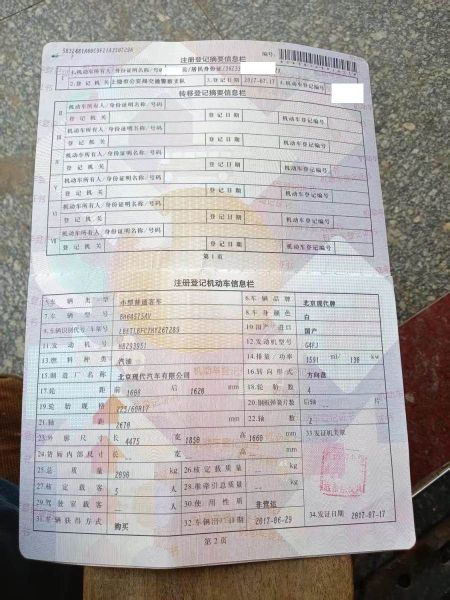 注册登记摘要信息栏
编号:
1.机动车所有人/身份证明名称/号码
居民身份证
2.登记机关 上饶市公安局交通警察支队 3.登记日期 2017-07-17 4.机动车登记编号
转移登记摘要信息栏
Ⅱ 机动车所有人/身份证明名称/号码
登记机关 登记日期 机动车登记编号
Ⅲ 机动车所有人/身份证明名称/号码
登记机关 登记日期 机动车登记编号
Ⅳ 机动车所有人/身份证明名称/号码
登记机关 登记日期 机动车登记编号
Ⅴ 机动车所有人/身份证明名称/号码
登记机关 登记日期 机动车登记编号
Ⅵ 机动车所有人/身份证明名称/号码
登记机关 登记日期 机动车登记编号
Ⅶ 机动车所有人/身份证明名称/号码
登记机关 登记日期 机动车登记编号
第1页
注册登记机动车信息栏
5.车辆类型 小型普通客车 6.车辆品牌 北京现代牌
7.车辆型号 8.车身颜色 白
9.车辆识别代号/车架号 10.国产/进口 国产
11.发动机号 12.发动机型号 G4FJ
13.燃料种类 汽油 14.排量/功率 1591 ml/ 130 kw
15.制造厂名称 北京现代汽车有限公司 16.转向形式 方向盘
17.轮距 前 1608 后 1620 mm 18.轮胎数 4
19.轮胎规格 225/60R17 20.钢板弹簧片数 后轴 -- 片
21.轴距 2670 mm 22.轴数 2
23.外廓尺寸 长 4475 宽 1850 高 1660 mm 33.发证机关章
24.货厢内部尺寸 长 -- 宽 -- 高 -- mm
25.总质量 2090 kg 26.核定载质量 -- kg
27.核定载客 5 人 28.准牵引总质量 -- kg
29.驾驶室载客 -- 人 30.使用性质 非营运
31.车辆获得方式 购买 32.车辆出厂日期 2017-06-29 34.发证日期 2017-07-17
第2页